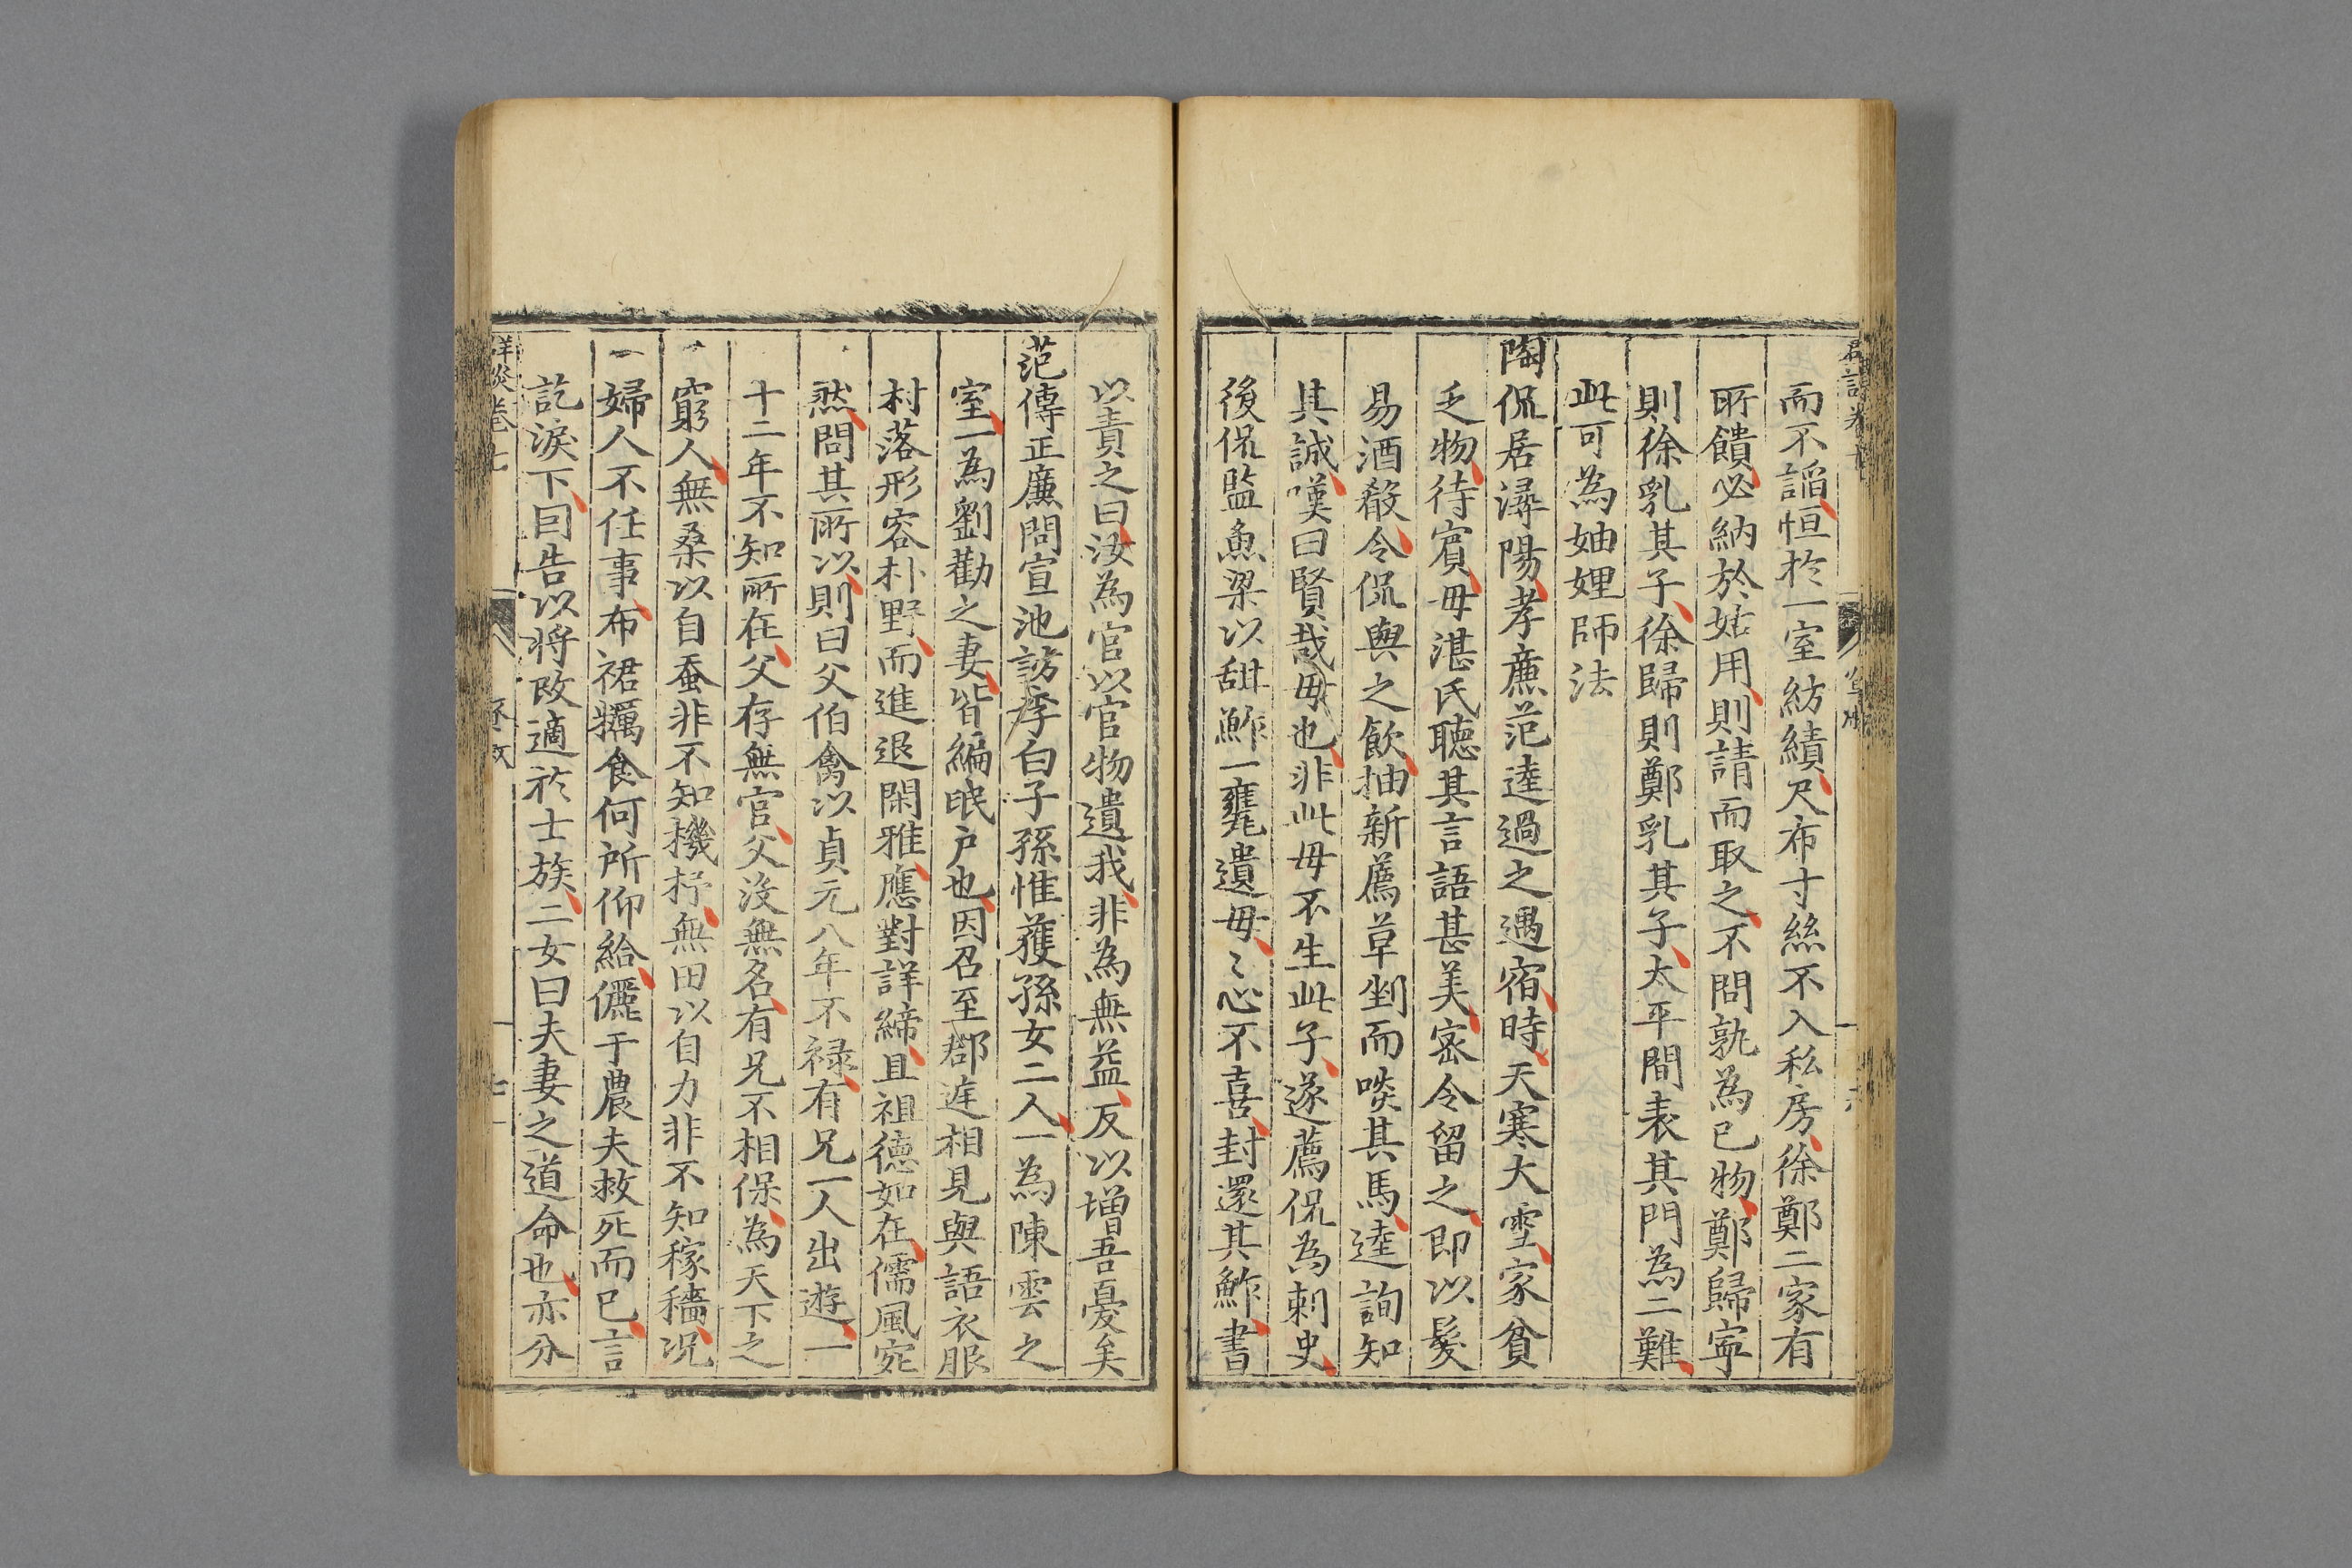 而不謟恒於一室紡績尺布寸絲不入私房徐鄭二家有
所饋必納於姑用則請而取之不問孰為已物鄭歸寧
則徐乳其子徐歸則鄭乳其子太平間表其門為二難
此可為妯娌師法
陶侃居潯陽孝廉范逵過之遇宿時天寒大雪家貧
乏物待賓毋湛氏聽其言語甚美密令留之即以髮
易酒殽令侃與之飲抽新薦草剉而啖其馬逵詢知
其誠嘆曰賢哉毋也非此毋不生此子遂薦侃為刺史
後侃監魚梁以甜鮓一甕遺毋〻心不喜封還其鮓書
以責之曰汝為官以官物遺我非為無益反以增吾憂矣
范傳正廉問宣池訪李白子孫惟獲孫女二人一為陳雲之
室一為劉勸之妻皆編氓户也因召至郡庭相見與語衣服
村落形容朴野而進退閑雅應對詳締且祖德如在儒風宛
然問其所以則曰父伯禽以貞元八年不禄有兄一人出遊一
十二年不知所在父存無官父没無名有兄不相保為天下之
窮人無桑以自蚕非不知機杼無田以自力非不知稼穡况
婦人不任事布裙糲食何所仰給儷于農夫救死而已言
訖淚下回告以将改適於士族二女曰夫妻之道命也亦分
卷七